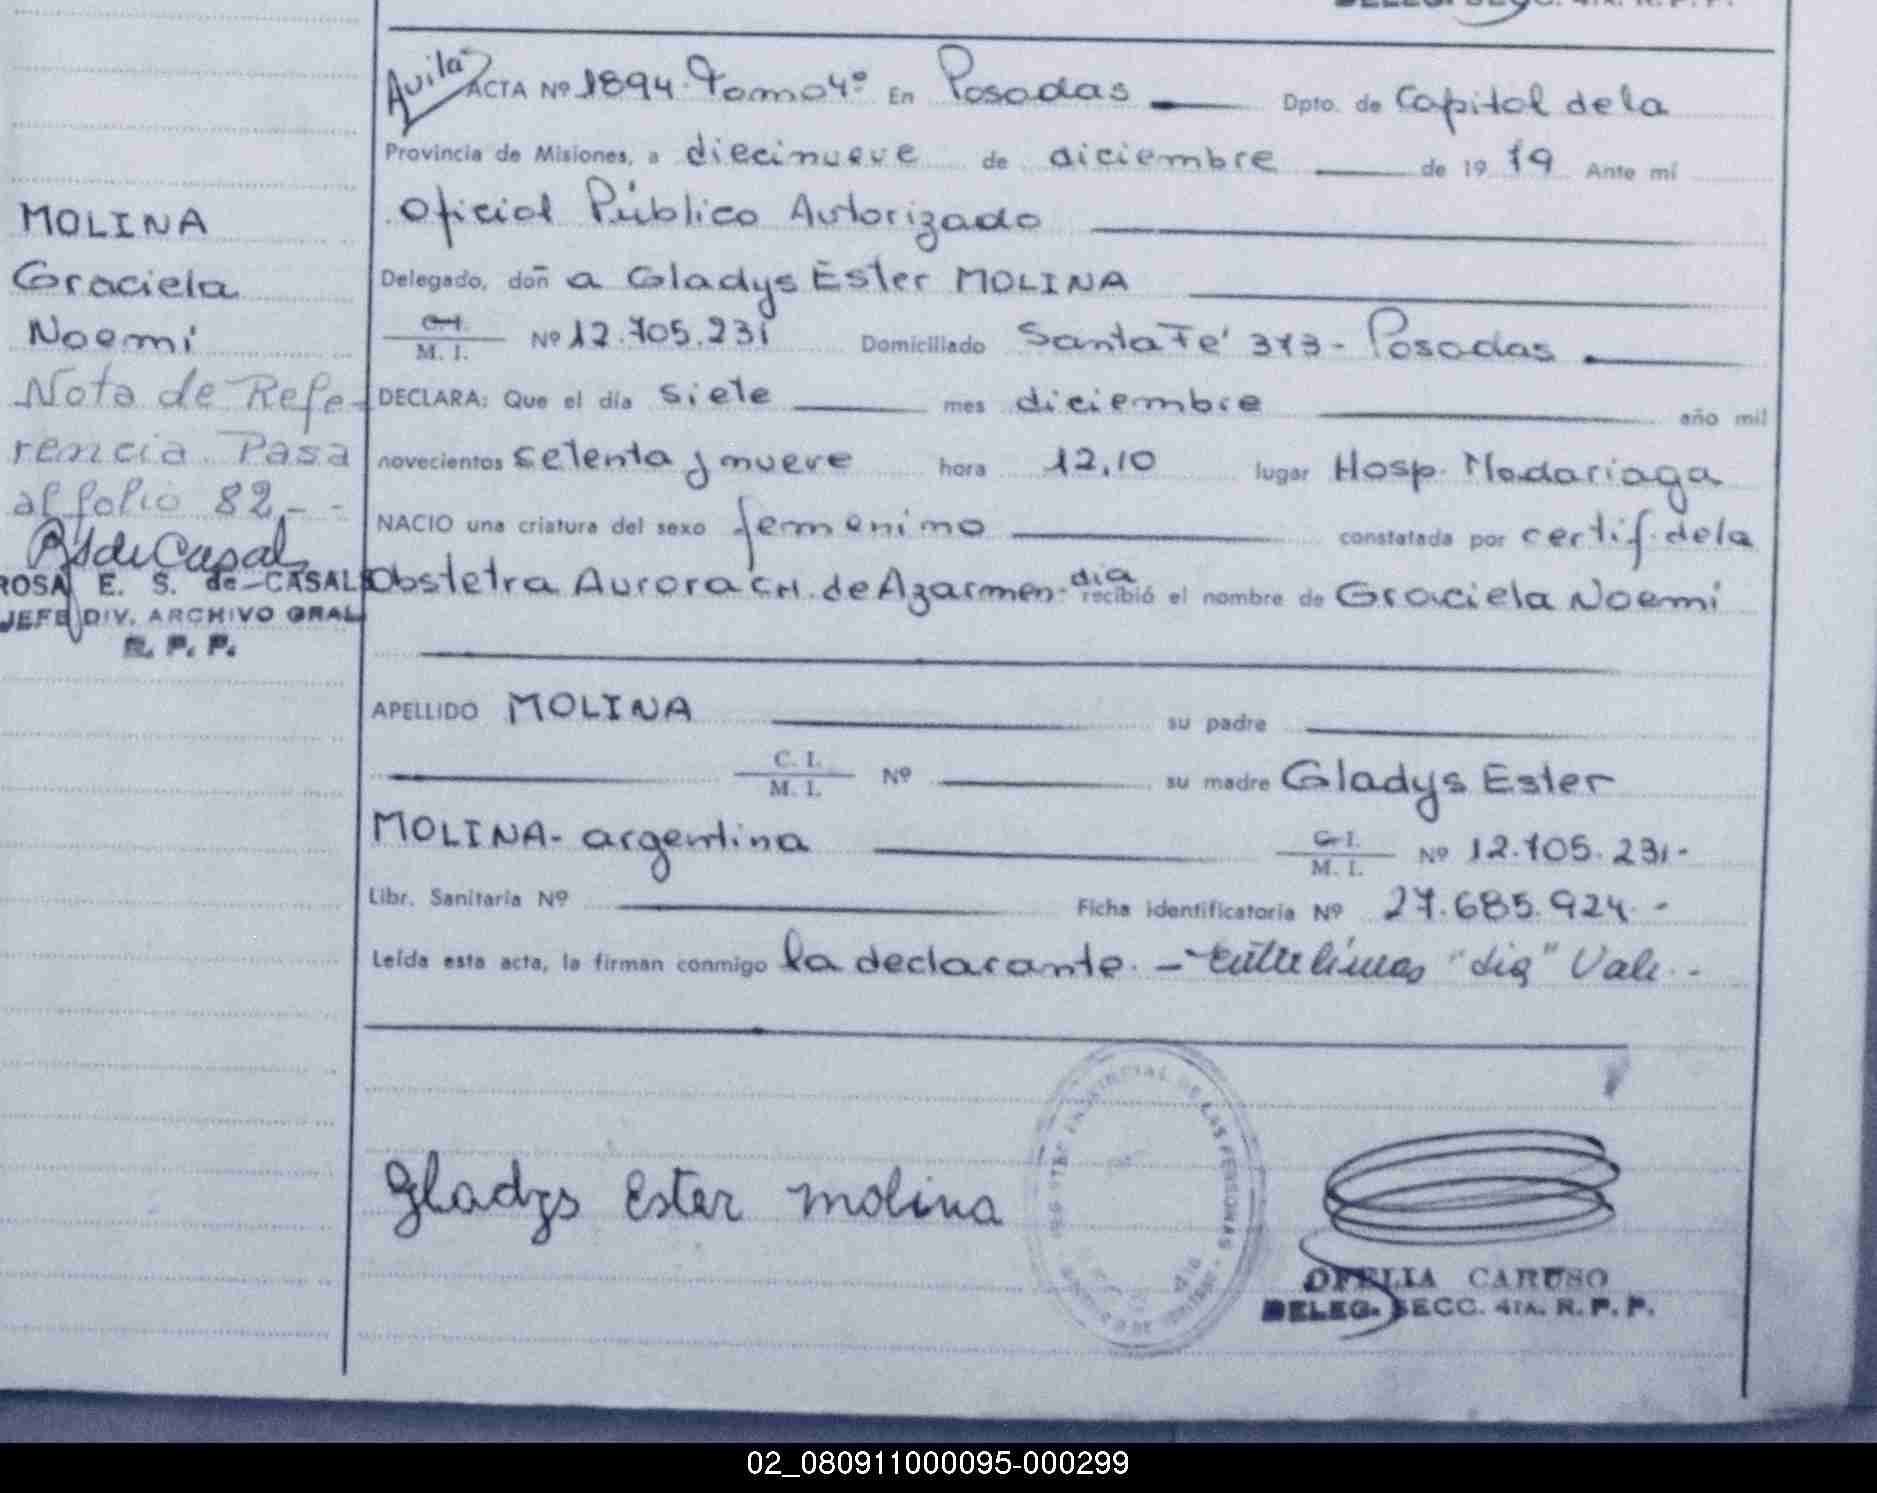 Avila
ACTA Nº 1894. Tomo 4º En Posadas Dpto. de Capital de la
Provincia de Misiones, a diecinueve de diciembre de 19 79 Ante mí
Oficial Público Autorizado
Delegado, doñ a Gladys Ester MOLINA
C. I.
M. I. Nº 12.705.231 Domiciliado Santa Fe 373 - Posadas
DECLARA: Que el día siete mes diciembre año mil
novecientos setenta y nueve hora 12,10 lugar Hosp. Madariaga
NACIO una criatura del sexo femenino constatada por certif. de la
Obstetra Aurora CH. de Azarmen-dia recibió el nombre de Graciela Noemi
APELLIDO MOLINA su padre
C. I.
M. I. Nº su madre Gladys Ester
MOLINA - argentina C. I.
M. I. Nº 12.705.231-
Libr. Sanitaria Nº Ficha identificatoria Nº 27.685.924.-
Leída esta acta, la firman conmigo la declarante. - Entrelíneas "dia" Vale.-
Gladys Ester Molina
OFELIA CARUSO
DELEG. SECC. 4TA. R. P. P.
MOLINA
Graciela
Noemi
Nota de Refe-
rencia Pasa
al folio 82.--
ROSA E. S. de CASAL
JEFE DIV. ARCHIVO GRAL
R. P. P.
02_080911000095-000299